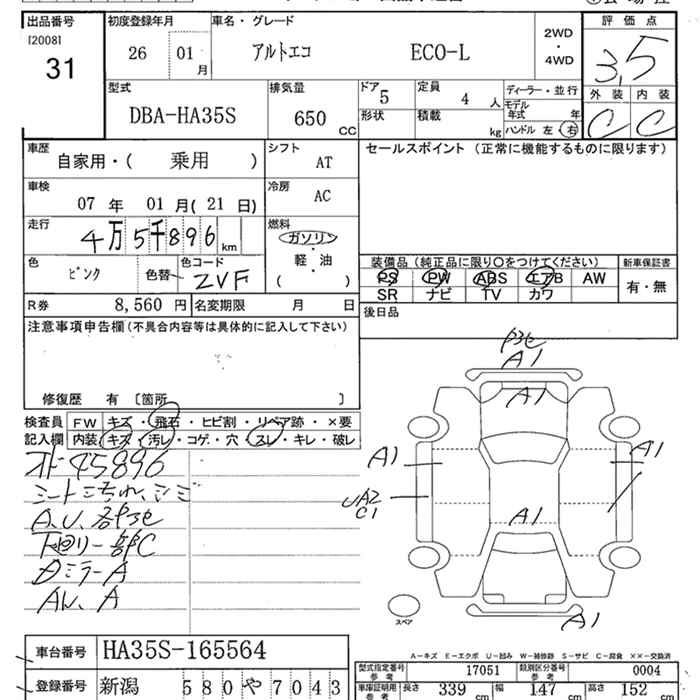 出品番号 初度登録年月 車名・グレード 評価点
[2008]
31
26 01 月 アルトエコ ECO-L 2WD・4WD 3.5
外装 内装
C C
型式 排気量 ドア 定員 ディーラー・並行
DBA-HA35S 650 CC 5 4 人
形状 積載 kg モデル年式 年
ハンドル 左・右
車歴 シフト セールスポイント (正常に機能するものに限ります)
自家用・( 乗用 ) AT
車検 冷房
07 年 01 月( 21 日) AC
走行 燃料
4万5千896 km ガソリン・軽・油
( )
色 色コード
ピンク 色替 ZVF
装備品 (純正品に限り○をつけてください) 新車保証書
PS PW ABS エアB AW 有・無
SR ナビ TV カワ
R券 8,560 円 名変期限 月 日 後日品
注意事項申告欄 (不具合内容等は具体的に記入して下さい)
修復歴 有 〔箇所 〕
検査員記入欄 FW キズ・飛石・ヒビ割・リペア跡・×要
内装 キズ・汚レ・コゲ・穴・スレ・キレ・破レ
45896
シートこちれ、シミ
A、U、各部
下廻り一部C
ミラーA
A
A1
A1
A1
A1
UA2
C1
A1
A1
スペア
A1
A-キズ E-エクボ U-凹み W-補修跡 S-サビ C-腐食 ××-交換済
車台番号 HA35S-165564
型式指定番号 参考 17051 類別区分番号 参考 0004
登録番号 新潟 580や7043
車庫証明用 参考 長さ 339 cm 幅 147 cm 高さ 152 cm